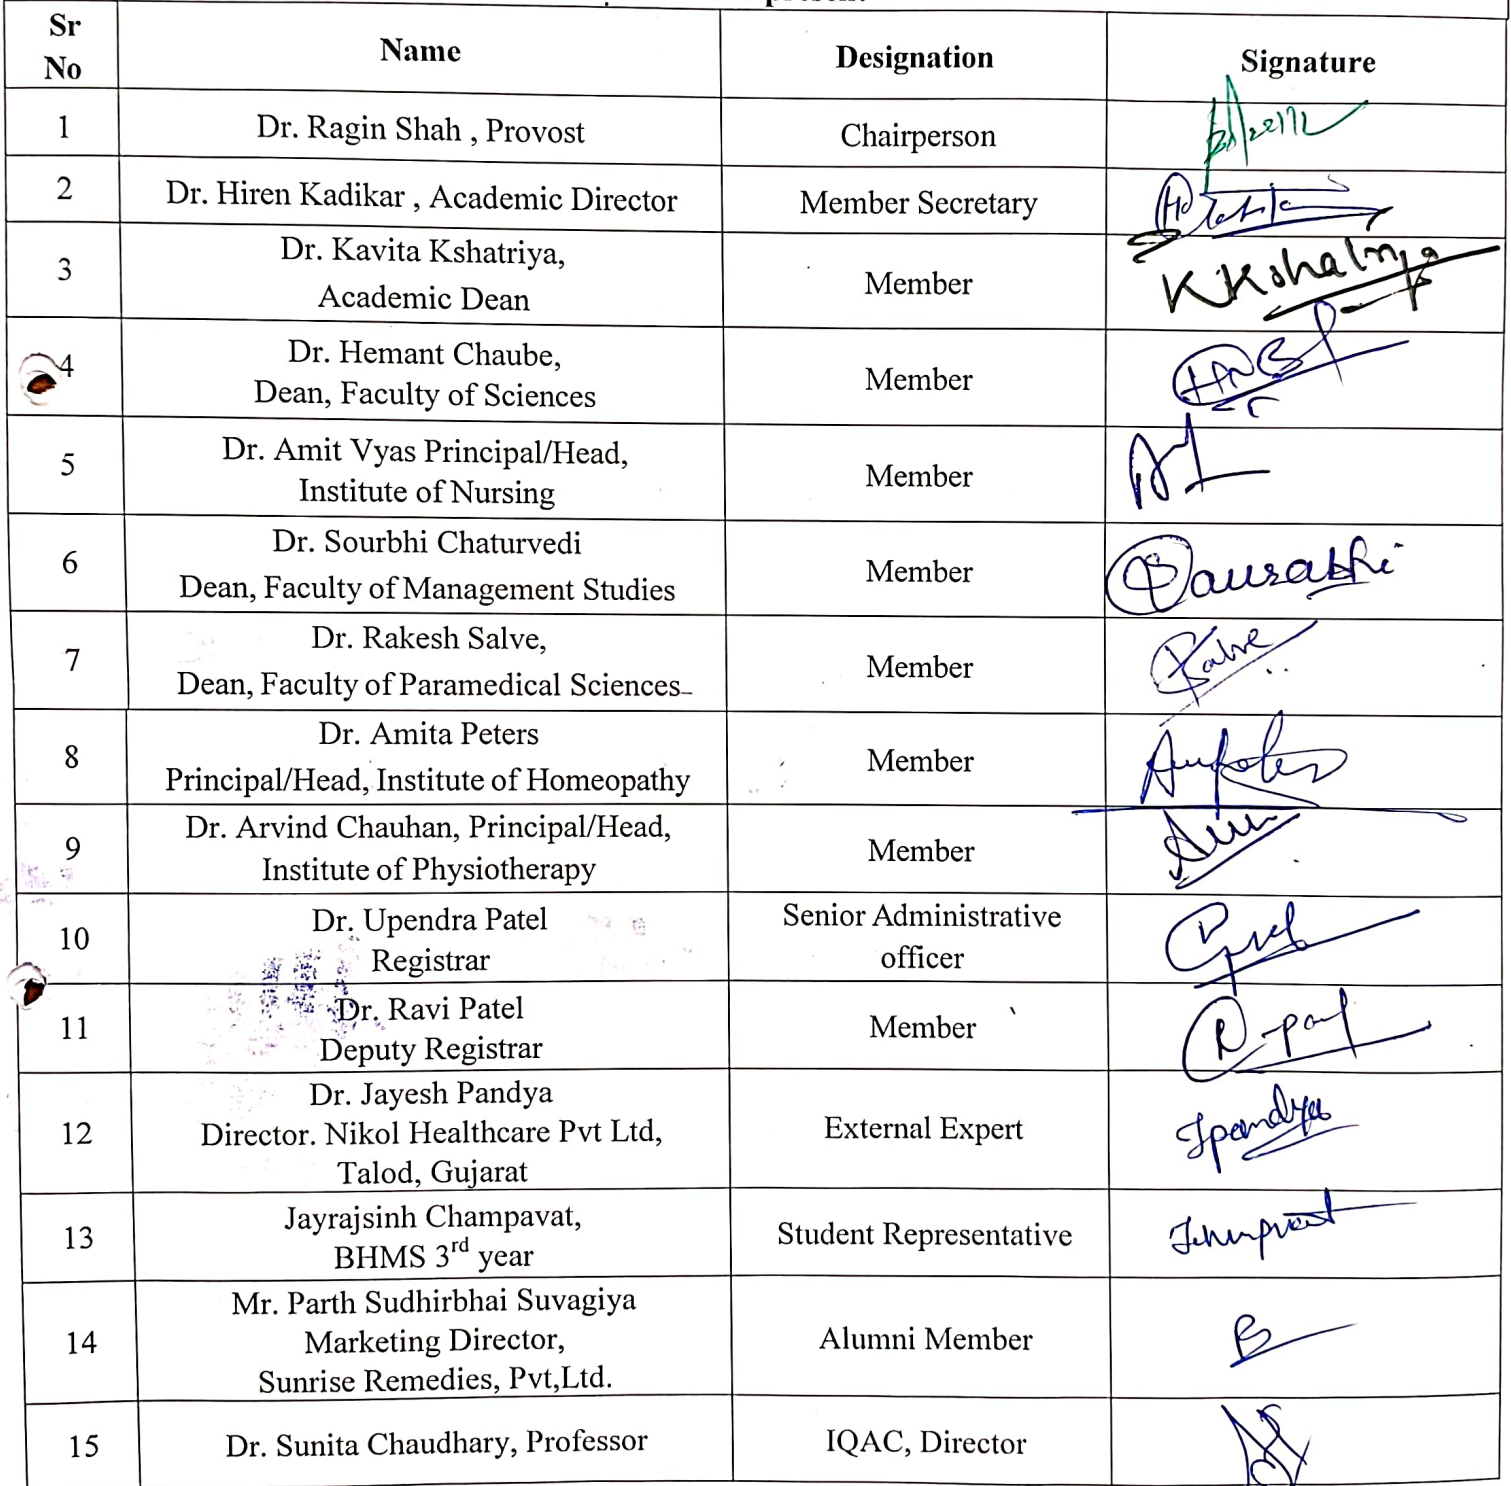 Sr No Name Designation Signature
1 Dr. Ragin Shah , Provost Chairperson
2 Dr. Hiren Kadikar , Academic Director Member Secretary
3 Dr. Kavita Kshatriya,
Academic Dean Member KKshatriya
4 Dr. Hemant Chaube,
Dean, Faculty of Sciences Member
5 Dr. Amit Vyas Principal/Head,
Institute of Nursing Member
6 Dr. Sourbhi Chaturvedi
Dean, Faculty of Management Studies Member
7 Dr. Rakesh Salve,
Dean, Faculty of Paramedical Sciences Member
8 Dr. Amita Peters
Principal/Head, Institute of Homeopathy Member
9 Dr. Arvind Chauhan, Principal/Head,
Institute of Physiotherapy Member
10 Dr. Upendra Patel
Registrar Senior Administrative
officer
11 Dr. Ravi Patel
Deputy Registrar Member
12 Dr. Jayesh Pandya
Director. Nikol Healthcare Pvt Ltd,
Talod, Gujarat External Expert Jpandya
13 Jayrajsinh Champavat,
BHMS 3rd year Student Representative
14 Mr. Parth Sudhirbhai Suvagiya
Marketing Director,
Sunrise Remedies, Pvt,Ltd. Alumni Member
15 Dr. Sunita Chaudhary, Professor IQAC, Director